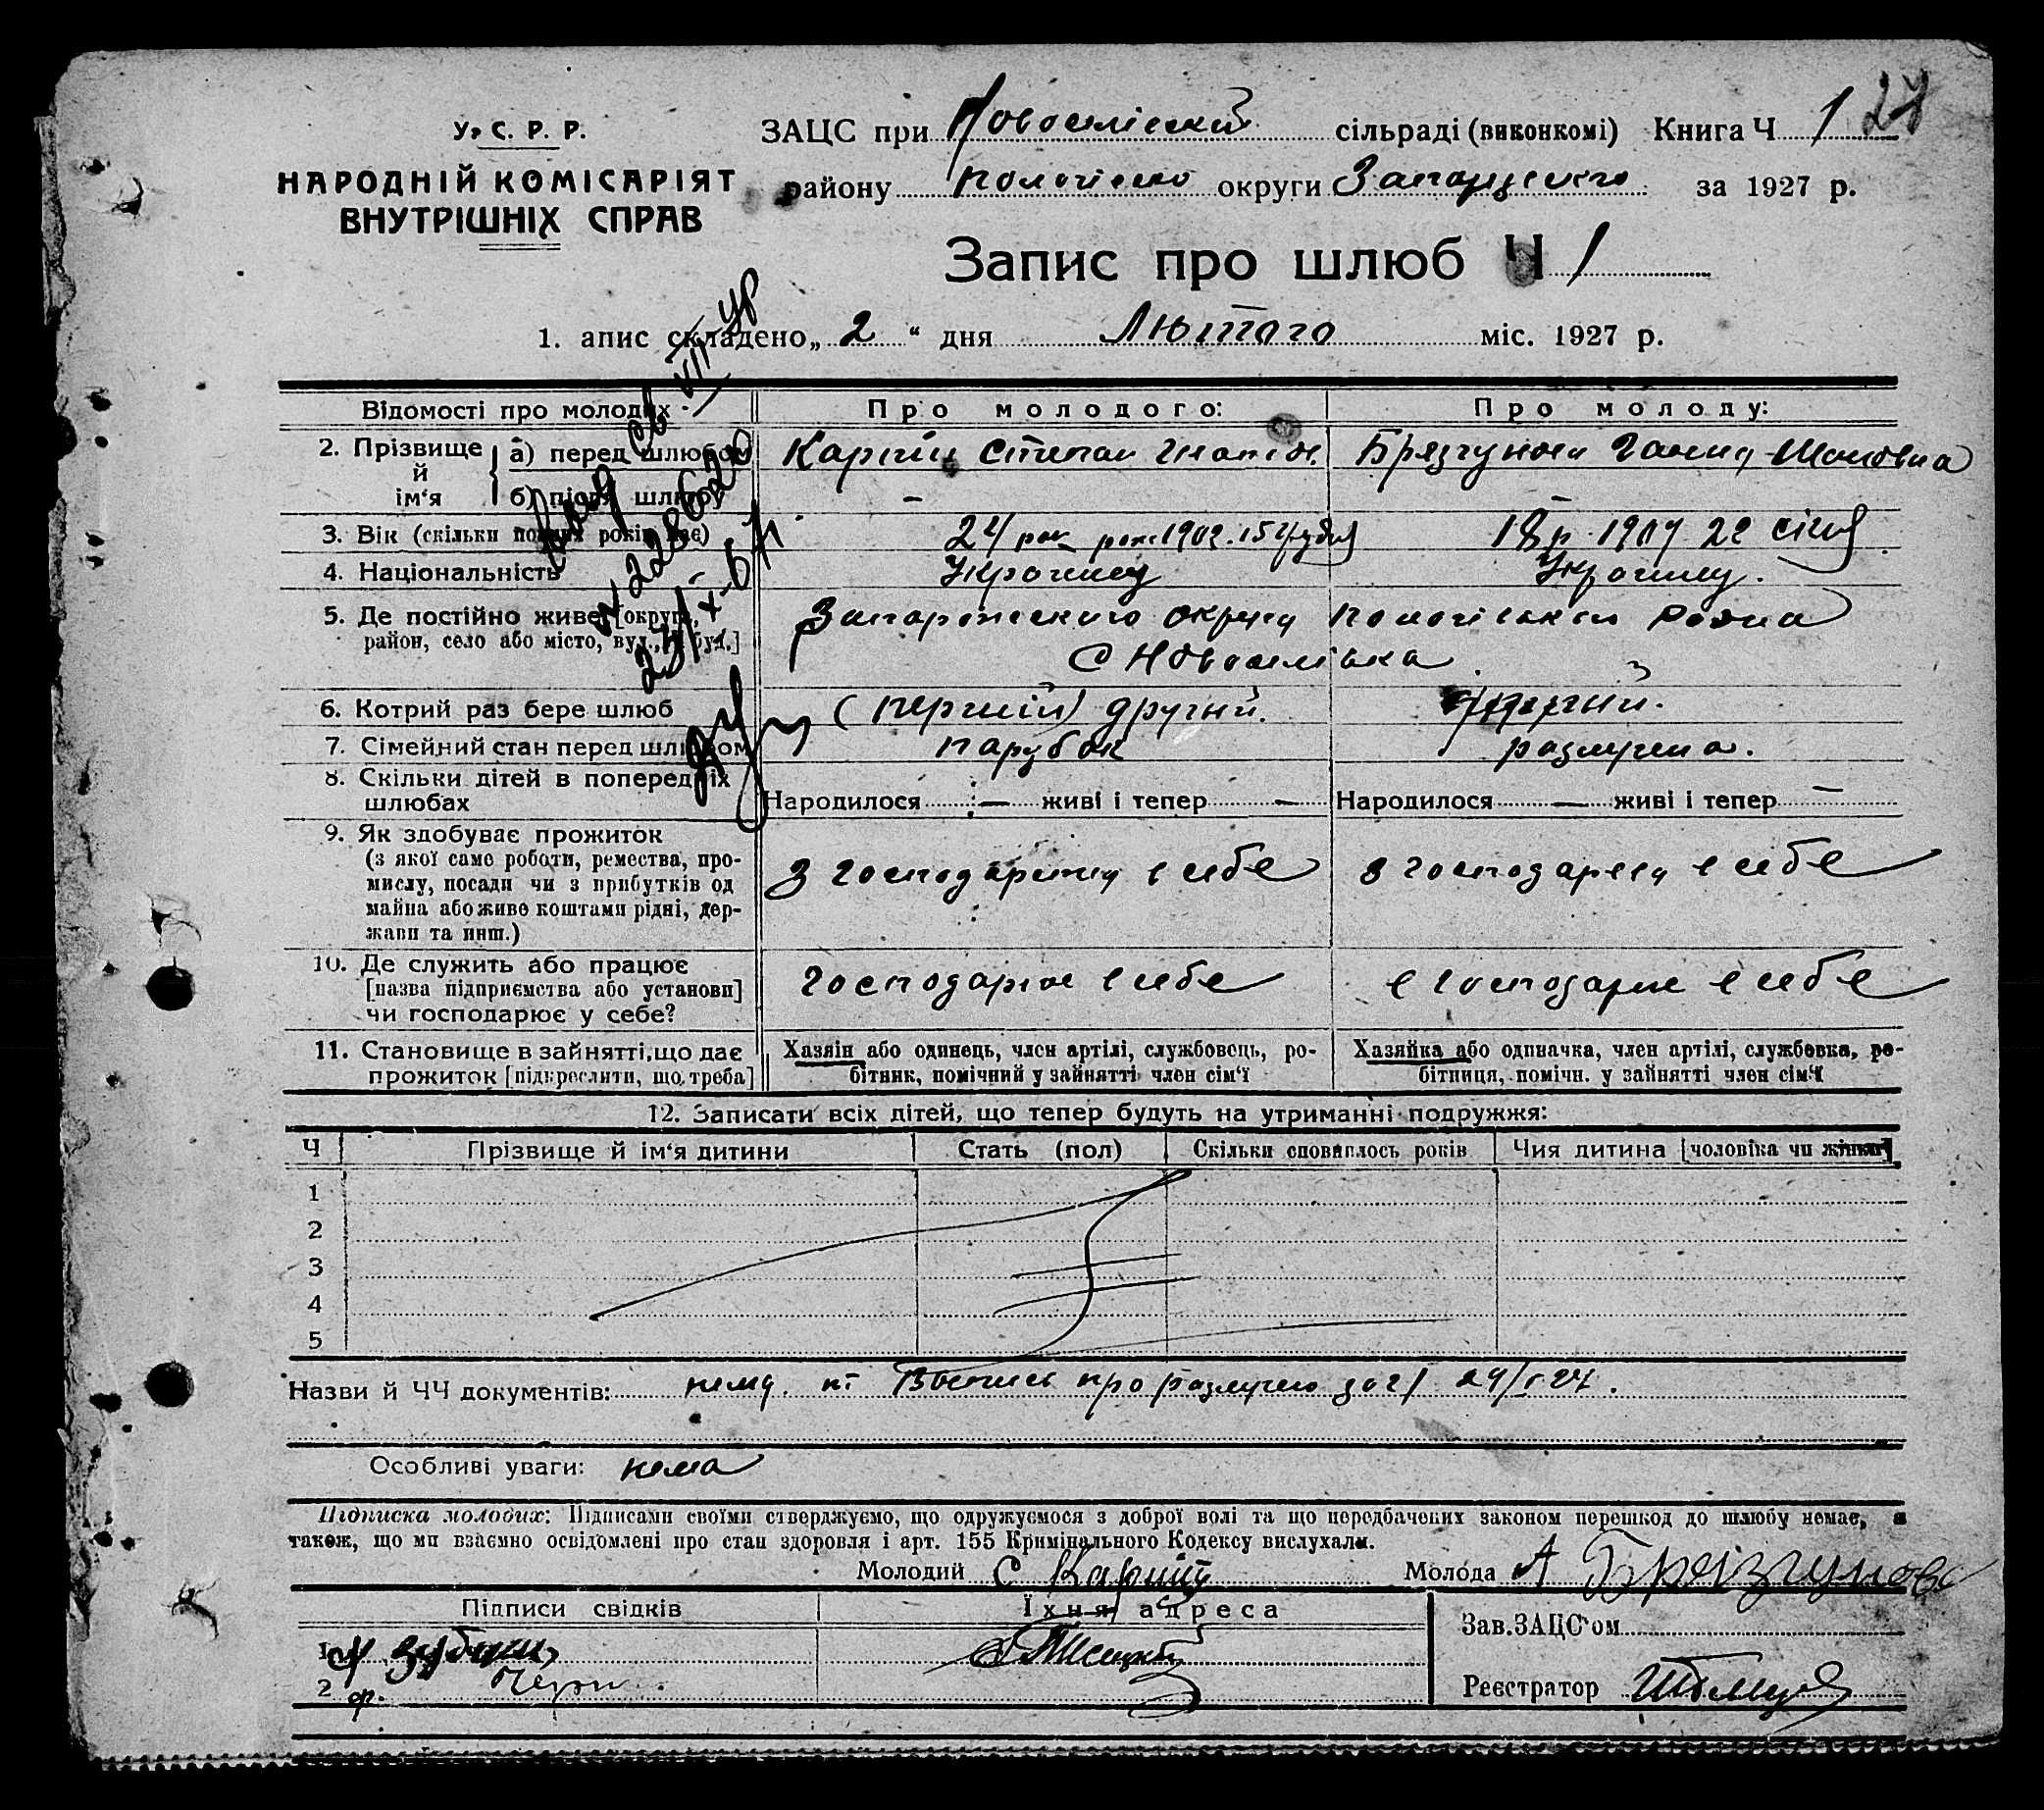 У. С. Р. Р.
НАРОДНІЙ КОМІСАРІЯТ
ВНУТРІШНІХ СПРАВ
ЗАЦС при Новоселівській сільраді (виконкомі) Книга Ч 1 27
району Пологівсько округи Запоріжського за 1927 р.
Запис про шлюб Ч 1
1. апис складено „ 2 “ дня Лютого міс. 1927 р.
Відомості про молодих
Про молодого:
Про молоду:
2. Прізвище й ім‘я
а) перед шлюбом
Степан
Ганна
б) після шлюбу
–
–
3. Вік (скільки повних років має)
24 рок 1902. 15 Грудня
18 р. 22 січня
4. Національність
5. Де постійно живе [округа,
район, село або місто, вул., Ч буд.]
Запоріжського округу Пологівського Района
С Новоселівка
6. Котрий раз бере шлюб
(перший) другий.
другий.
7. Сімейний стан перед шлюбом
парубок
разлучена.
8. Скільки дітей в попередніх
шлюбах
Народилося — живі і тепер –
Народилося — живі і тепер —
9. Як здобуває прожиток
(з якої саме роботи, ремества, про-
мислу, посади чи з прибутків од
майна або живе коштами рідні, дер-
жави та инш.)
З господарства в себе
З господарства в себе
10. Де служить або працює
[назва підприємства або установи]
чи господарює у себе?
господарює в себе
в господарює в себе
11. Становище в зайнятті, що дає
прожиток [підкреслити, що треба]
Хазяін або одинець, член артілі, службовець, ро-
бітник, помічний у зайнятті член сім‘ї
Хазяйка або одиначка, член артілі, службовка, ро-
бітниця, помічн. у зайнятті член сім‘ї
12. Записати всіх дітей, що тепер будуть на утриманні подружжя:
Ч
Прізвище й ім‘я дитини
Стать (пол)
Скільки сповнилось років
Чия дитина [чоловіка чи жінки]
1
2
3
4
5
Назви й ЧЧ документів: нема. про разлучення
Особливі уваги: нема
Підписка молодих: Підписами своїми стверджуємо, що одружуємося з доброї волі та що передбачених законом перешкод до шлюбу немає, а
також, що ми взаємно освідомлені про стан здоровля і арт. 155 Кримінального Кодексу вислухали.
Молодий С
Молода А Брязгунова
Підписи свідків
Їхня адреса
Зав. ЗАЦС‘ом
1
2
Реєстратор